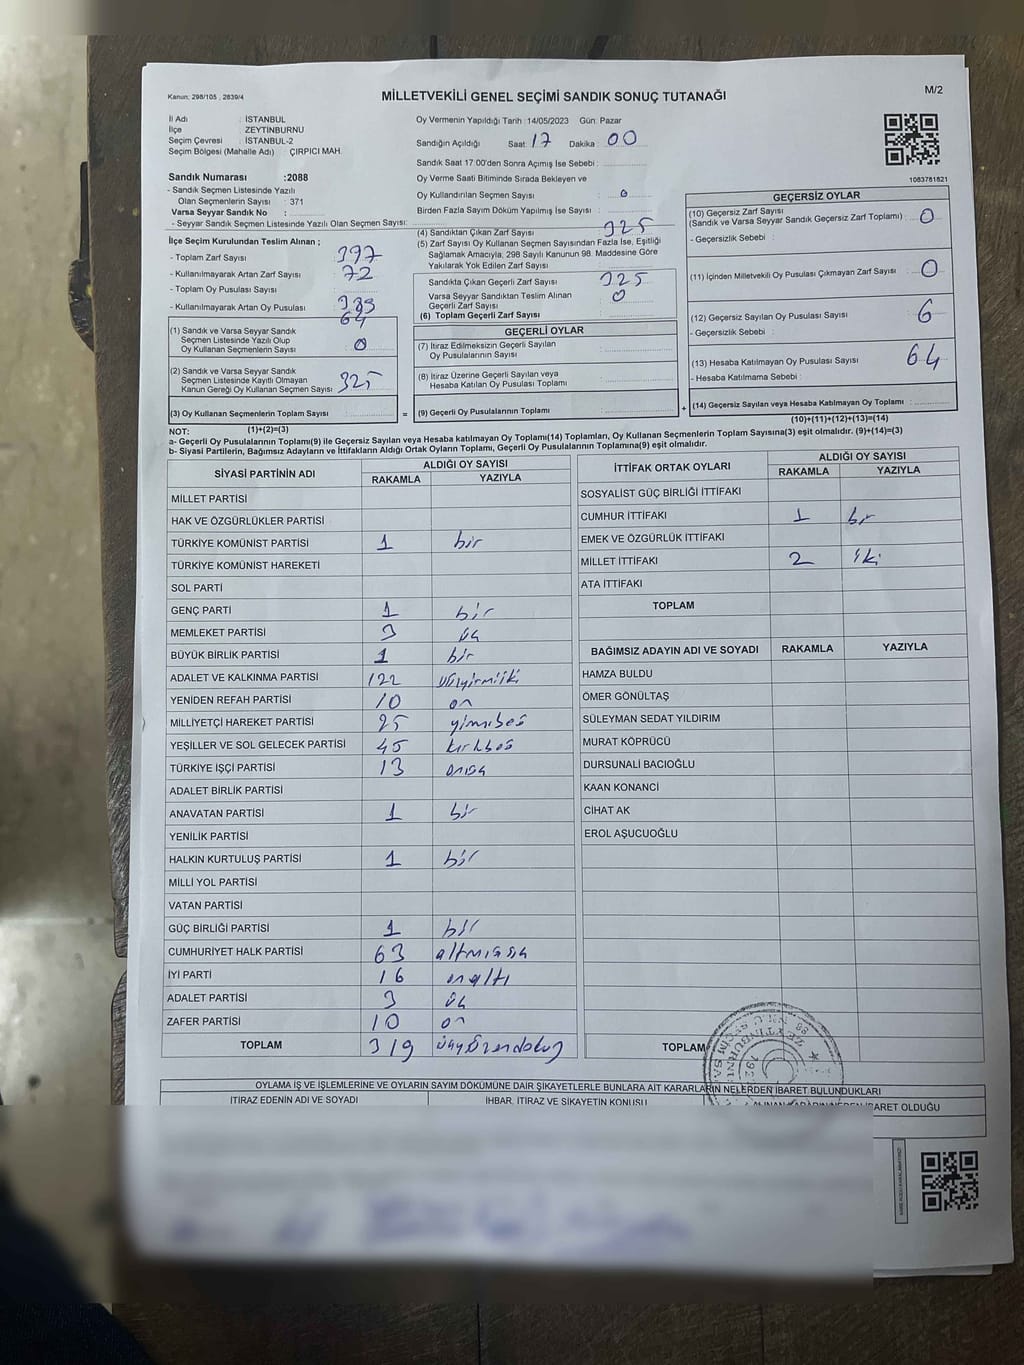 Kanun: 298/105 , 2839/4
MİLLETVEKİLİ GENEL SEÇİMİ SANDIK SONUÇ TUTANAĞI
M/2
İl Adı : İSTANBUL
İlçe : ZEYTİNBURNU
Seçim Çevresi : İSTANBUL-2
Seçim Bölgesi (Mahalle Adı) : ÇIRPICI MAH.
Sandık Numarası :2088
- Sandık Seçmen Listesinde Yazılı
Olan Seçmenlerin Sayısı : 371
Varsa Seyyar Sandık No :
- Seyyar Sandık Listesinde Yazılı Olan Seçmen Sayısı:
İlçe Seçim Kurulundan Teslim Alınan ;
- Toplam Zarf Sayısı : 397
- Kullanılmayarak Artan Zarf Sayısı : 72
- Toplam Oy Pusulası Sayısı :
- Kullanılmayarak Artan Oy Pusulası : 64
(1) Sandık ve Varsa Seyyar Sandık
Seçmen Listesinde Yazılı Olup
Oy Kullanan Seçmenlerin Sayısı : 0
(2) Sandık ve Varsa Seyyar Sandık
Seçmen Listesinde Kayıtlı Olmayan
Kanun Gereği Oy Kullanan Seçmen Sayısı : 325
(3) Oy Kullanan Seçmenlerin Toplam Sayısı :
Oy Vermenin Yapıldığı Tarih : 14/05/2023 Gün: Pazar
Sandığın Açıldığı Saat: 17 Dakika : 00
Sandık Saat 17:00'den Sonra Açımış İse Sebebi :
Oy Verme Saati Bitiminde Sırada Bekleyen ve
Oy Kullandırılan Seçmen Sayısı : 0
Birden Fazla Sayım Döküm Yapılmış İse Sayısı :
(4) Sandıktan Çıkan Zarf Sayısı : 325
(5) Zarf Sayısı Oy Kullanan Seçmen Sayısından Fazla İse, Eşitliği
Sağlamak Amacıyla, 298 Sayılı Kanunun 98. Maddesine Göre
Yakılarak Yok Edilen Zarf Sayısı :
Sandıkta Çıkan Geçerli Zarf Sayısı : 325
Varsa Seyyar Sandıktan Teslim Alınan
Geçerli Zarf Sayısı : 0
(6) Toplam Geçerli Zarf Sayısı :
GEÇERLİ OYLAR
(7) İtiraz Edilmeksizin Geçerli Sayılan
Oy Pusulalarının Sayısı :
(8) İtiraz Üzerine Geçerli Sayılan veya
Hesaba Katılan Oy Pusulası Toplamı :
= (9) Geçerli Oy Pusulalarının Toplamı : +
1083781821
GEÇERSİZ OYLAR
(10) Geçersiz Zarf Sayısı
(Sandık ve Varsa Seyyar Sandık Geçersiz Zarf Toplamı) : 0
- Geçersizlik Sebebi :
(11) İçinden Milletvekili Oy Pusulası Çıkmayan Zarf Sayısı : 0
(12) Geçersiz Sayılan Oy Pusulası Sayısı : 6
- Geçersizlik Sebebi :
(13) Hesaba Katılmayan Oy Pusulası Sayısı : 64
- Hesaba Katılmama Sebebi :
(14) Geçersiz Sayılan veya Hesaba Katılmayan Oy Toplamı :
NOT: (1)+(2)=(3) (10)+(11)+(12)+(13)=(14)
a- Geçerli Oy Pusulalarının Toplamı(9) ile Geçersiz Sayılan veya Hesaba katılmayan Oy Toplamı(14) Toplamları, Oy Kullanan Seçmenlerin Toplam Sayısına(3) eşit olmalıdır. (9)+(14)=(3)
b- Siyasi Partilerin, Bağımsız Adayların ve İttifakların Aldığı Ortak Oyların Toplamı, Geçerli Oy Pusulalarının Toplamına(9) eşit olmalıdır.
SİYASİ PARTİNİN ADI ALDIĞI OY SAYISI
RAKAMLA YAZIYLA
MİLLET PARTİSİ
HAK VE ÖZGÜRLÜKLER PARTİSİ
TÜRKİYE KOMÜNİST PARTİSİ 1 bir
TÜRKİYE KOMÜNİST HAREKETİ
SOL PARTİ
GENÇ PARTİ 1 bir
MEMLEKET PARTİSİ 3 üç
BÜYÜK BİRLİK PARTİSİ 1 bir
ADALET VE KALKINMA PARTİSİ 122 yüzyirmiiki
YENİDEN REFAH PARTİSİ 10 on
MİLLİYETÇİ HAREKET PARTİSİ 25 yirmibeş
YEŞİLLER VE SOL GELECEK PARTİSİ 45 kırkbeş
TÜRKİYE İŞÇİ PARTİSİ 13 onüç
ADALET BİRLİK PARTİSİ
ANAVATAN PARTİSİ 1 bir
YENİLİK PARTİSİ
HALKIN KURTULUŞ PARTİSİ 1 bir
MİLLİ YOL PARTİSİ
VATAN PARTİSİ
GÜÇ BİRLİĞİ PARTİSİ 1 bir
CUMHURİYET HALK PARTİSİ 63 altmışüç
İYİ PARTİ 16 onaltı
ADALET PARTİSİ 3 üç
ZAFER PARTİSİ 10 on
TOPLAM 319 üçyüzondokuz
İTTİFAK ORTAK OYLARI ALDIĞI OY SAYISI
RAKAMLA YAZIYLA
SOSYALİST GÜÇ BİRLİĞİ İTTİFAKI
CUMHUR İTTİFAKI 1 bir
EMEK VE ÖZGÜRLÜK İTTİFAKI
MİLLET İTTİFAKI 2 iki
ATA İTTİFAKI
TOPLAM
BAĞIMSIZ ADAYIN ADI VE SOYADI RAKAMLA YAZIYLA
HAMZA BULDU
ÖMER GÖNÜLTAŞ
SÜLEYMAN SEDAT YILDIRIM
MURAT KÖPRÜCÜ
DURSUNALİ BACIOĞLU
KAAN KONANCİ
CİHAT AK
EROL AŞUCUOĞLU
TOPLAM
OYLAMA İŞ VE İŞLEMLERİNE VE OYLARIN SAYIM DÖKÜMÜNE DAİR ŞİKAYETLERLE BUNLARA AİT KARARLARIN NELERDEN İBARET BULUNDUKLARI
İTİRAZ EDENİN ADI VE SOYADI İHBAR, İTİRAZ VE ŞİKAYETİN KONUSU ALINAN KARARIN NEDEN İBARET OLDUĞU